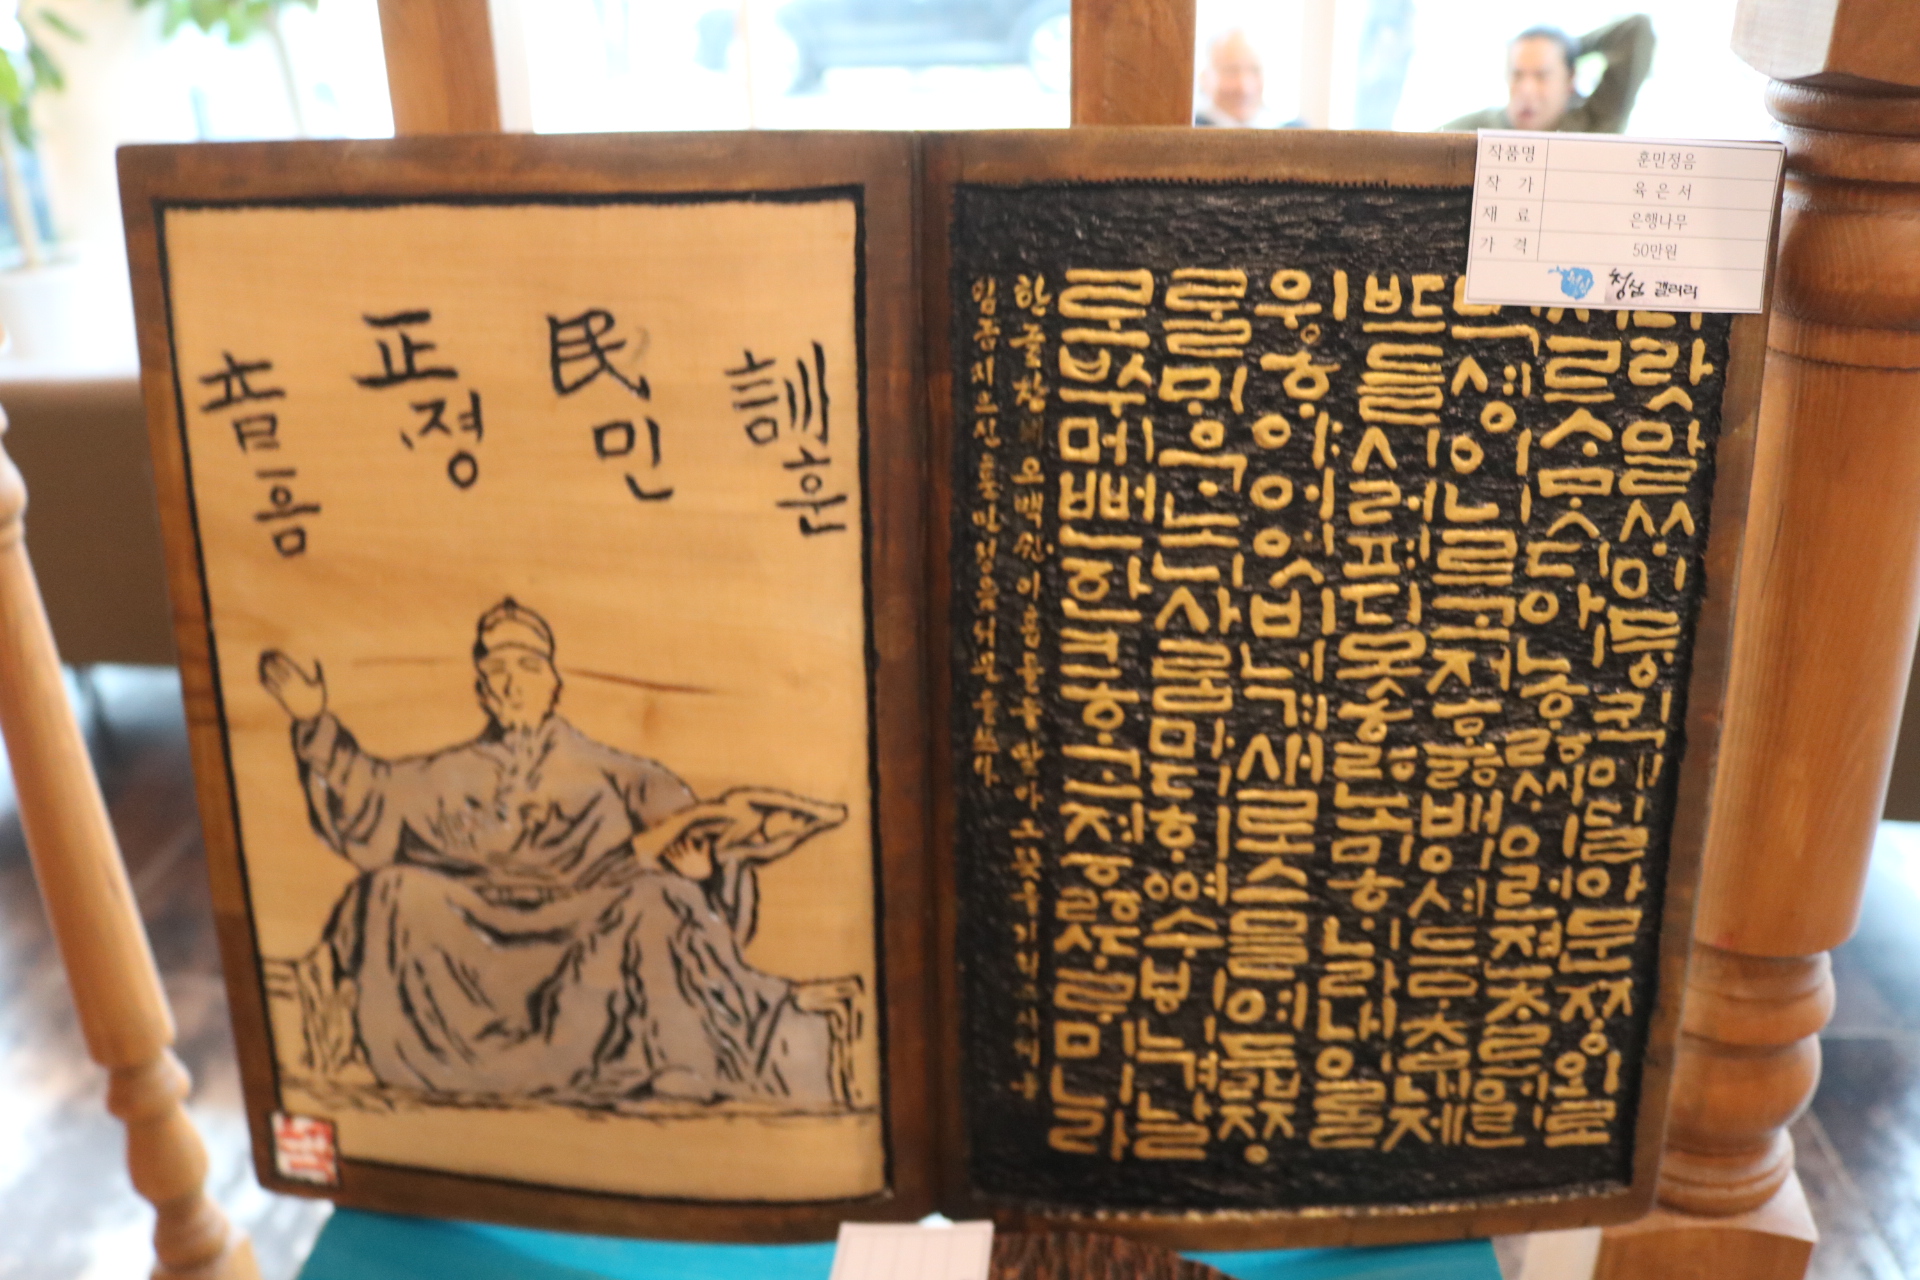 訓훈
民민
正정
音음
랏말ᄊᆞ미듕귁에달아문ᄍᆞᆼ와로
르ᄉᆞᄆᆞᆺ디아니ᄒᆞᆯᄊᆡ이런젼ᄎᆞ로어린
셩이니르고져호ᇙ배이셔도ᄆᆞᄎᆞᆷ내제
ᄠᅳ들시러펴디몯ᄒᆞᇙ노미하니라내이ᄅᆞᆯ
윙ᄒᆞ야어엿비너겨새로스믈여듧ᄍᆞᆼ
ᄅᆞᆯᄆᆡᇰᄀᆞ노니사ᄅᆞᆷ마다ᄒᆡᅇᅧ수ᄫᅵ니겨날
로ᄡᅮ메뼌한킈ᄒᆞ고져ᄒᆞᇙᄯᆞᄅᆞ미니라
작품명 훈민정음
작 가 육 은 서
재 료 은행나무
가 격 50만원
갤러리